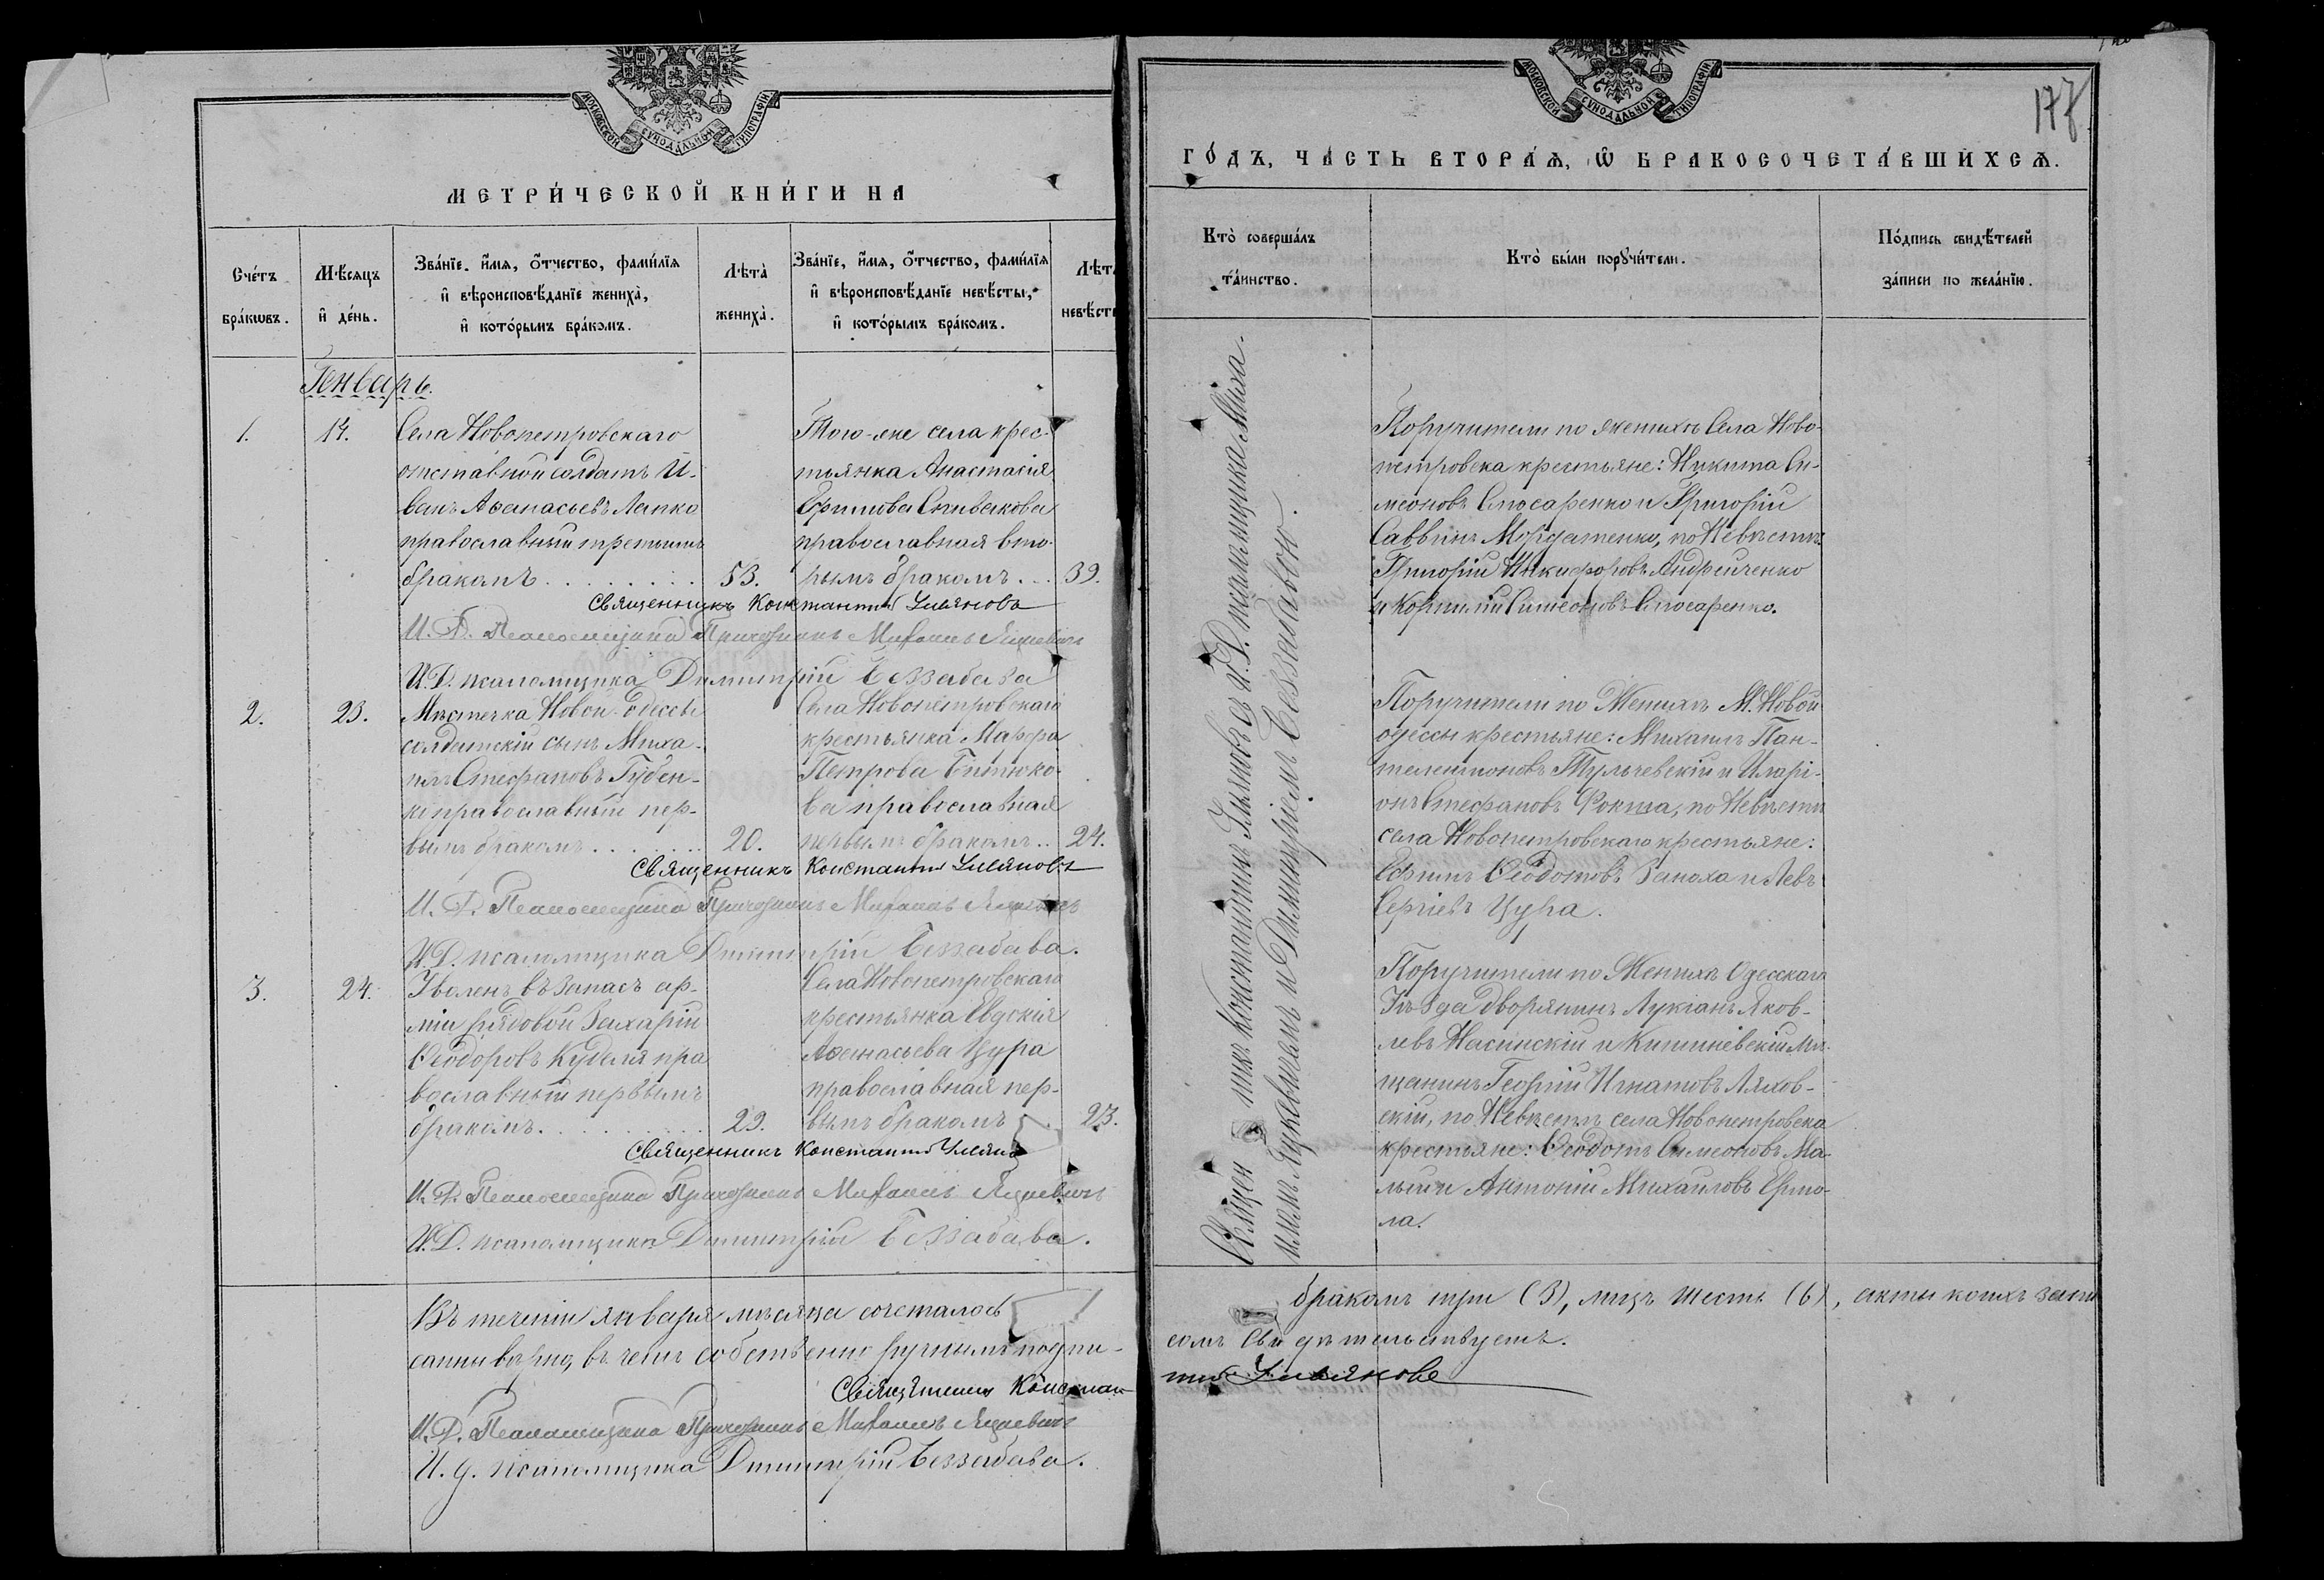 МОСКОВСКОЙ СѴНОДАЛЬНОЙ ТИПОГРАФІИ
МЕТРИ́ЧЕСКОЙ КНИ́ГИ НА
Сче́тъ бра́кѡвъ.
Мѣ́сяцъ и де́нь.
Зва́нїе, и́мя, о́тчество, фами́лїя
и вѣроисповѣ́данїе жениха̀,
и кото́рымъ бра́комъ.
Лѣта̀ жениха̀.
Зва́нїе, и́мя, о́тчество, фами́лїя
и вѣроисповѣ́данїе невѣ́сты,
и кото́рымъ бра́комъ.
Лѣт невѣ́ст
Генварь.
1. 14.
Села Новопетровскаго
отставной солдатъ И-
ванъ Аѳанасьевъ Лапко
православный третьимъ
бракомъ . . . . . . . . 53.
Того-же села крес-
тьянка Анастасія
Ефимова Спивакова
православная вто-
рымъ бракомъ . . . 39.
Священникъ Константинъ Ульяновъ
И. Д. Псаломщика Михаилъ
И. Д. псаломщика Димитрій Беззабава
2. 23.
Мѣстечка Новой-Одессы
солдатскій сынъ Миха-
илъ Стефановъ Губен-
ко православный пер-
вымъ бракомъ . . . . . . . 20.
Села Новопетровскаго
крестьянка Марфа
Петрова Битюко-
ва православная
первымъ бракомъ . . 24.
Священникъ Константинъ Ульяновъ
И. Д. Псаломщика Михаилъ
И. Д. псаломщика Димитрій Беззабава.
3. 24.
Уволенъ въ запасъ ар-
міи рядовой Захарій
Ѳеодоровъ Куделя пра
вославный первымъ
бракомъ . . . . . . . . 29.
Села Новопетровскаго
крестьянка Евдокія
Аѳанасьева Цура
православная пер-
вымъ бракомъ 23.
Священникъ Константинъ Ульяновъ
И. Д. Псаломщика Михаилъ
И. Д. псаломщика Димитрій Беззабава.
Въ теченіи января мѣсяца сочеталось
саны вѣрно, въ чемъ собственно ручнымъ подпи-
Священникъ Констан-
И. Д. Псаломщика Михаилъ
И. д. псаломщика Димитрій Беззабава.
177
МОСКОВСКОЙ СѴНОДАЛЬНОЙ ТИПОГРАФІИ
ГО́ДЪ, ЧА́СТЬ ВТОРА́Я, Ѡ БРАКОСОЧЕТА́ВШИХСЯ.
Кто̀ соверша́лъ
та́инство.
Кто̀ бы́ли порꙋчи́тели.
По́дпись свидѣ́телей
за́писи по жела́нїю.
Священникъ Константинъ Ульяновъ съ И. Д. псаломщика Миха-
иломъ и Димитріемъ Беззабавою.
Поручители по женихѣ Села Ново-
петровска крестьяне: Никита Си-
меоновъ Слюсаренко и Григорій
Саввинъ Мордатенко, по Невѣстѣ
Григорій Никифоровъ Андрейченко
и Корнилій Симеоновъ Слюсаренко.
Поручители по Женихѣ М. Новой
одессы крестьяне: Михаилъ Пан-
телеимоновъ Тульчевскій и Иларі-
онъ Стефановъ Фокша, по Невѣстѣ
села Новопетровскаго крестьяне:
Ефимъ Ѳеодотовъ Запоха и Левъ
Сергіевъ Цура.
Поручители по Женихѣ Одесскаго
Уѣзда дворянинъ Лукіанъ Яков-
левъ Насинскій и Кишиневскій Мѣ-
щанинъ Георгій Игнатовъ Ляхов-
скій, по Невѣстѣ села Новопетровска
крестьяне: Ѳеодотъ Симеоновъ Ма-
лый и Антоній Михаиловъ Ермо-
ла.
бракомъ три (3), лицъ шесть (6), акты коихъ запи
сомъ свидѣтельствуетъ.
тинъ Ульяновъ